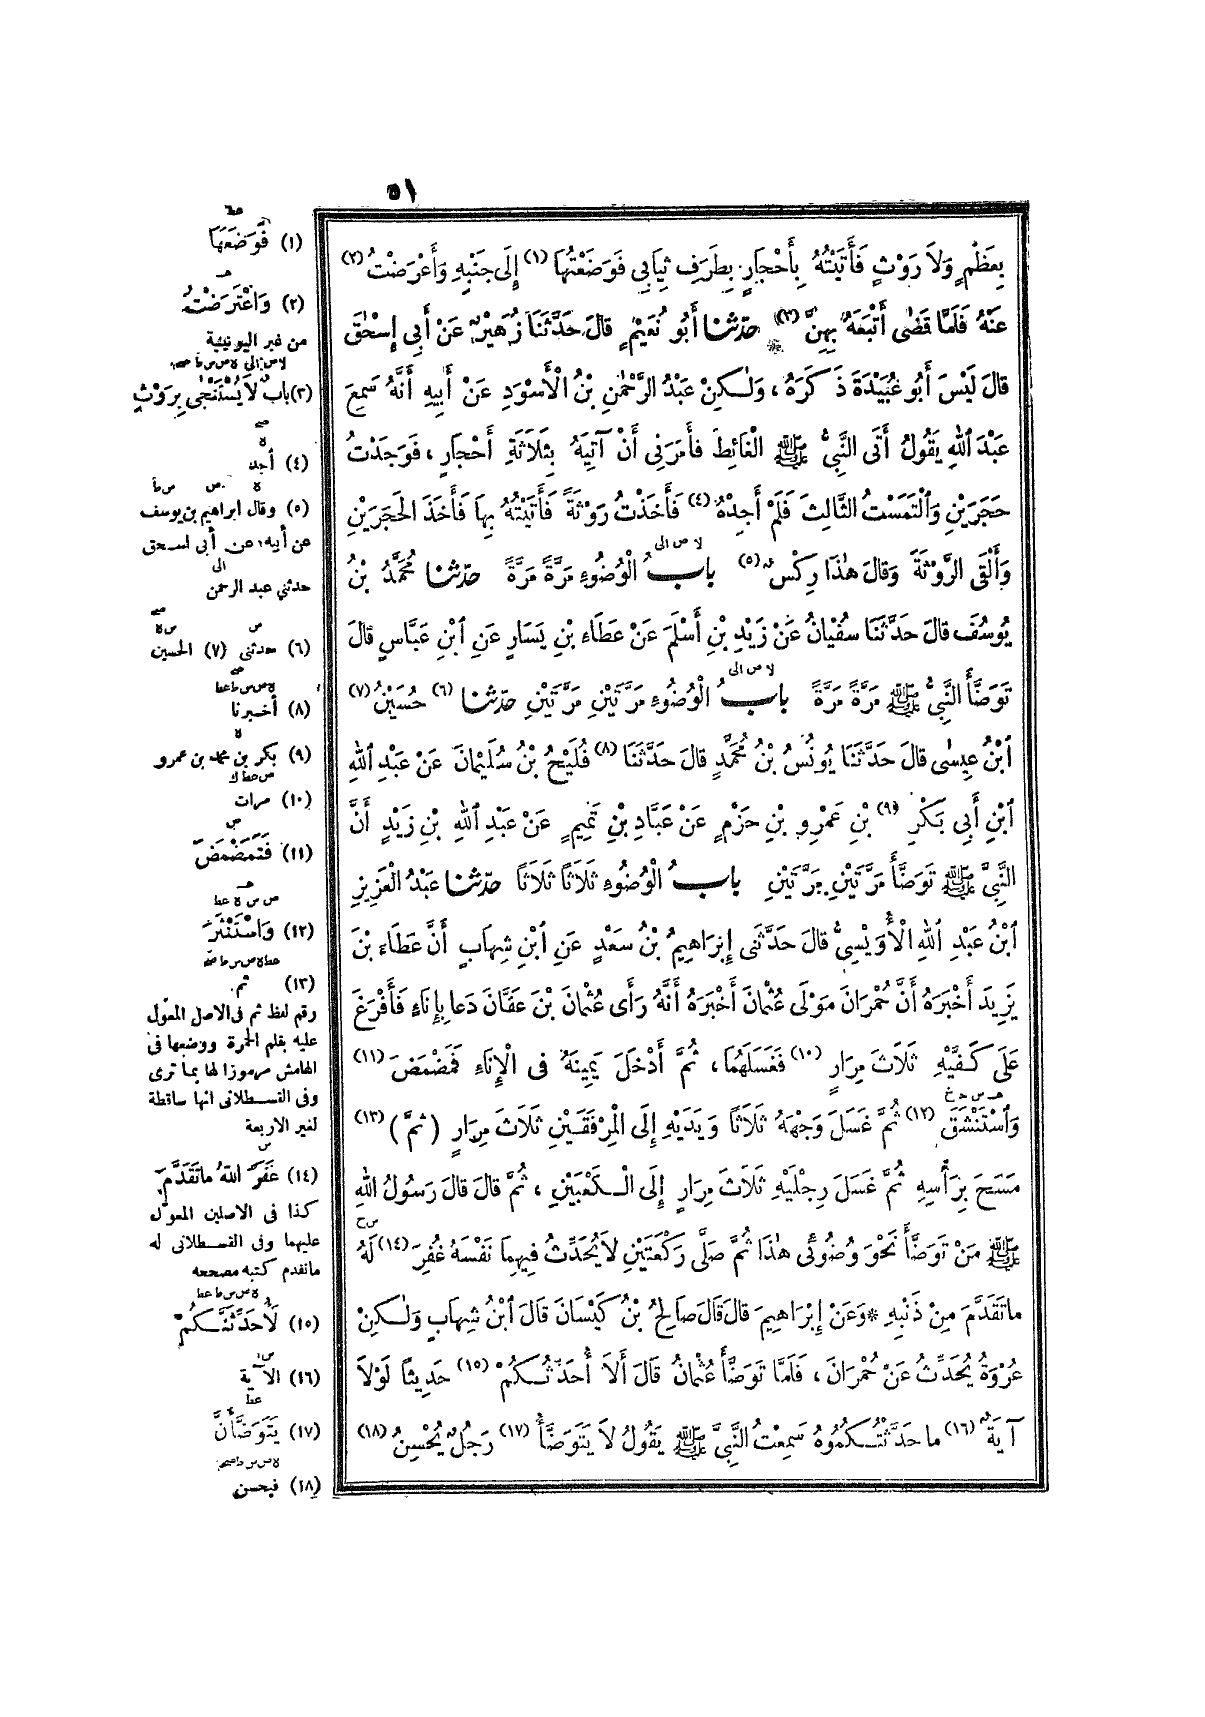 ٥١
بِعَظْمٍ وَلاَ رَوْثٍ فَأَتَيْتُهُ بِأَحْجَارٍ بِطَرَفِ ثِيَابِي فَوَضَعْتُهَا (١) إِلَى جَنْبِهِ وَأَعْرَضْتُ (٢)
عَنْهُ فَلَمَّا قَضَى أَتْبَعَهُ بِهِنَّ (٣) حدّثنا أَبُو نُعَيْمٍ قالَ حَدَّثَنَا زُهَيْرٌ عَنْ أَبِي إِسْحٰقَ
قالَ لَيْسَ أَبُو عُبَيْدَةَ ذَكَرَهُ ، وَلٰكِنْ عَبْدُ الرَّحْمٰنِ بْنُ الْأَسْوَدِ عَنْ أَبِيهِ أَنَّهُ سَمِعَ
عَبْدَ اللهِ يَقُولُ أَتَى النَّبِيُّ ﷺ الْغَائِطَ فَأَمَرَنِي أَنْ آتِيَهُ بِثَلاَثَةِ أَحْجَارٍ ، فَوَجَدْتُ
حَجَرَيْنِ وَالْتَمَسْتُ الثَّالِثَ فَلَمْ أَجِدْهُ (٤) فَأَخَذْتُ رَوْثَةً فَأَتَيْتُهُ بِهَا فَأَخَذَ الْحَجَرَيْنِ
وَأَلْقَى الرَّوْثَةَ وَقالَ هٰذَا رِكْسٌ (٥) بابُ الْوُضُوءِ مَرَّةً مَرَّةً حدّثنا مُحَمَّدُ بْنُ
يُوسُفَ قالَ حَدَّثَنَا سُفْيَانُ عَنْ زَيْدِ بْنِ أَسْلَمَ عَنْ عَطَاءِ بْنِ يَسَارٍ عَنِ ابْنِ عَبَّاسٍ قالَ
تَوَضَّأَ النَّبِيُّ ﷺ مَرَّةً مَرَّةً بابُ الْوُضُوءِ مَرَّتَيْنِ مَرَّتَيْنِ حدّثنا (٦) حُسَيْنُ (٧)
ابْنُ عِيسٰى قالَ حَدَّثَنَا يُونُسُ بْنُ مُحَمَّدٍ قالَ حَدَّثَنَا (٨) فُلَيْحُ بْنُ سُلَيْمَانَ عَنْ عَبْدِ اللهِ
ابْنِ أَبِي بَكْرِ (٩) بْنِ عَمْرِو بْنِ حَزْمٍ عَنْ عَبَّادِ بْنِ تَمِيمٍ عَنْ عَبْدِ اللهِ بْنِ زَيْدٍ أَنَّ
النَّبِيَّ ﷺ تَوَضَّأَ مَرَّتَيْنِ مَرَّتَيْنِ بابُ الْوُضُوءِ ثَلاَثًا ثَلاَثًا حدّثنا عَبْدُ الْعَزِيزِ
ابْنُ عَبْدِ اللهِ الْأُوَيْسِيُّ قالَ حَدَّثَنِي إِبْرَاهِيمُ بْنُ سَعْدٍ عَنِ ابْنِ شِهَابٍ أَنَّ عَطَاءَ بْنَ
يَزِيدَ أَخْبَرَهُ أَنَّ حُمْرَانَ مَوْلَى عُثْمَانَ أَخْبَرَهُ أَنَّهُ رَأَى عُثْمَانَ بْنَ عَفَّانَ دَعَا بِإِنَاءٍ فَأَفْرَغَ
عَلَى كَفَّيْهِ ثَلاَثَ مِرَارٍ (١٠) فَغَسَلَهُمَا ، ثُمَّ أَدْخَلَ يَمِينَهُ فِي الْإِنَاءِ فَمَضْمَضَ (١١)
وَاسْتَنْشَقَ (١٢) ثُمَّ غَسَلَ وَجْهَهُ ثَلاَثًا وَيَدَيْهِ إِلَى الْمِرْفَقَيْنِ ثَلاَثَ مِرَارٍ (ثُمَّ) (١٣)
مَسَحَ بِرَأْسِهِ ثُمَّ غَسَلَ رِجْلَيْهِ ثَلاَثَ مِرَارٍ إِلَى الْكَعْبَيْنِ ، ثُمَّ قالَ قالَ رَسُولُ اللهِ
ﷺ مَنْ تَوَضَّأَ نَحْوَ وُضُوئِي هٰذَا ثُمَّ صَلَّى رَكْعَتَيْنِ لاَ يُحَدِّثُ فِيهِمَا نَفْسَهُ غُفِرَ (١٤) لَهُ
ما تَقَدَّمَ مِنْ ذَنْبِهِ * وَعَنْ إِبْرَاهِيمَ قالَ قالَ صَالِحُ بْنُ كَيْسَانَ قالَ ابْنُ شِهَابٍ وَلٰكِنْ
عُرْوَةُ يُحَدِّثُ عَنْ حُمْرَانَ ، فَلَمَّا تَوَضَّأَ عُثْمَانُ قالَ أَلاَ أُحَدِّثُكُمْ (١٥) حَدِيثًا لَوْلاَ
آيَةٌ (١٦) ما حَدَّثْتُكُمُوهُ سَمِعْتُ النَّبِيَّ ﷺ يَقُولُ لاَ يَتَوَضَّأُ (١٧) رَجُلٌ يُحْسِنُ (١٨)
(١) فَوَضَعَهَا
(٢) وَاعْتَرَضْتُ
من غير اليونينية
(٣) بابٌ لاَ يُسْتَنْجٰى بِرَوْثٍ
(٤) أجد
(٥) وقال ابراهيم بن يوسف
عن أبيه عن أبي اسحق
حدثني عبد الرحمن
(٦) حدثني (٧) الحسين
(٨) أخبرنا
(٩) بكر بن محمد بن عمرو
(١٠) مرات
(١١) فَتَمَضْمَضَ
(١٢) وَاسْتَنْثَرَ
(١٣) ثم
رقم لفظ ثم في الاصل المعوّل
عليه بقلم الحمرة ووضعها في
الهامش مرموزا لها بما ترى
وفي القسطلاني انها ساقطة
لغير الاربعة
(١٤) غَفَرَ اللهُ ما تَقَدَّمَ
كذا في الاصلين المعوّل
عليهما وفي القسطلاني له
ما تقدم كتبه مصححه
(١٥) لَأُحَدِّثَنَّكُمْ
(١٦) الآية
(١٧) يَتَوَضَّأَنَّ
(١٨) فيحسن